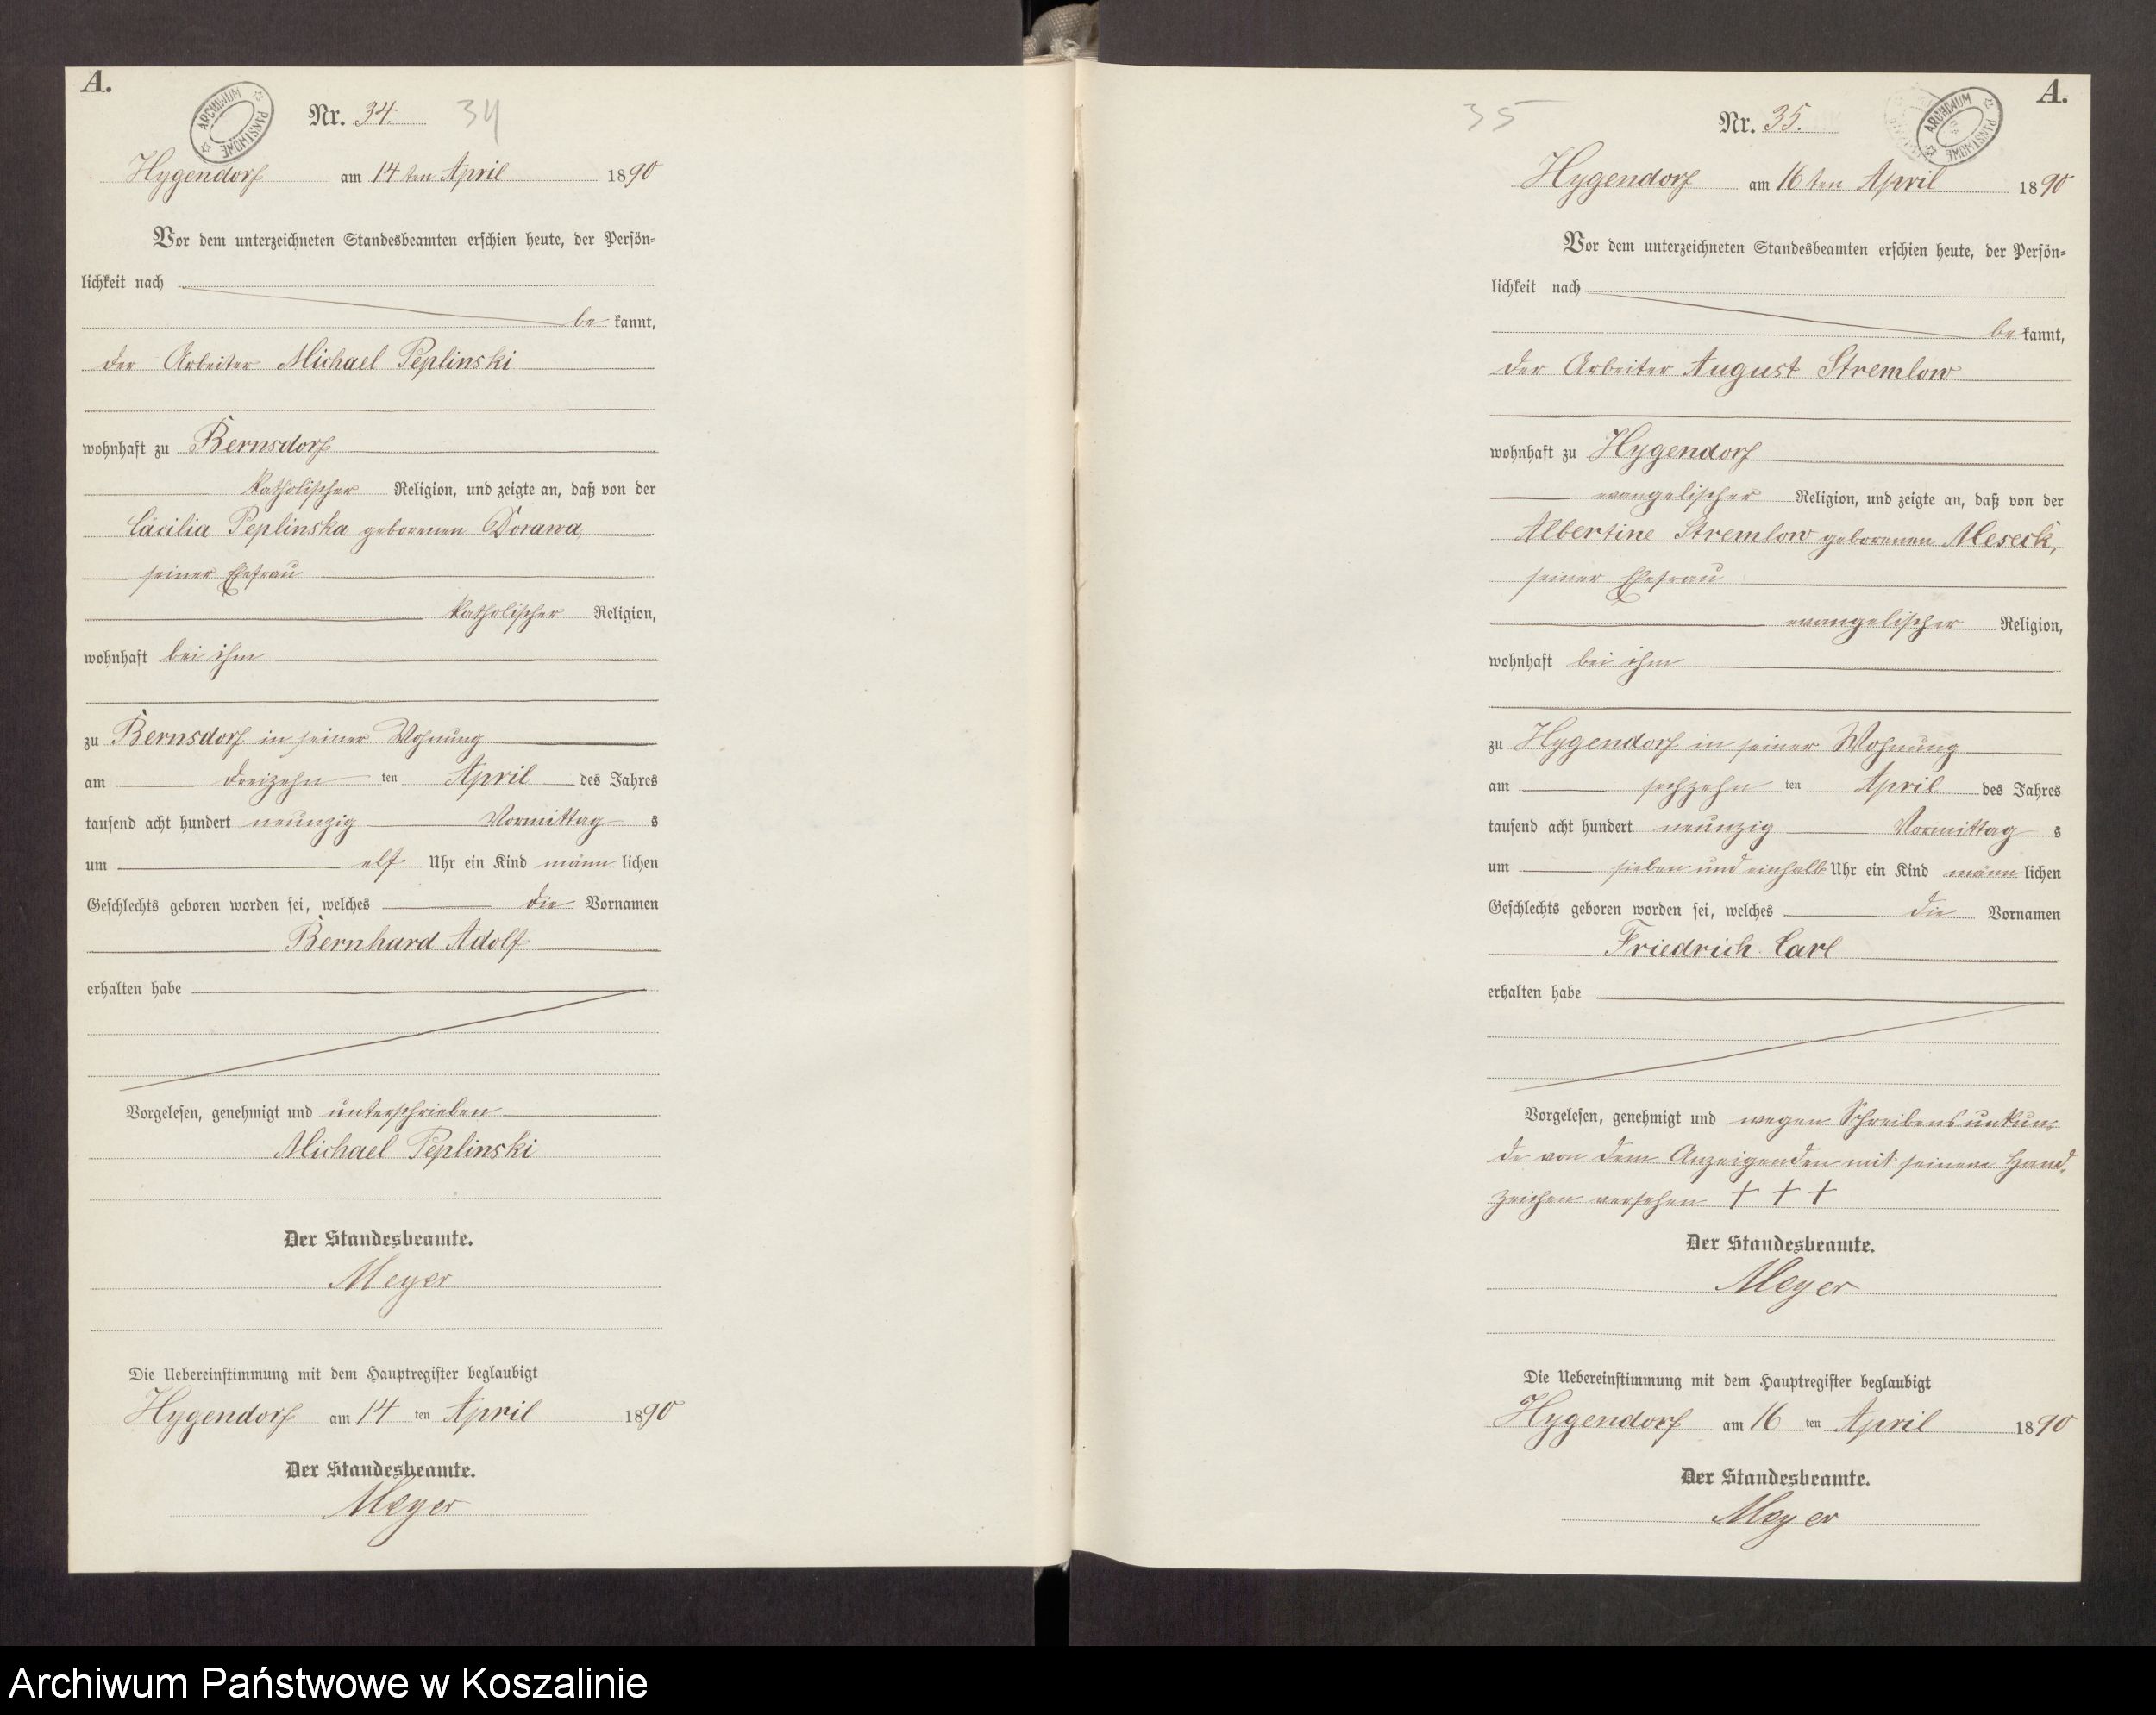 A.
ARCHIWUM PAŃSTWOWE
Nr. 34. 34
Hygendorf am 14 ten April 1890
Vor dem unterzeichneten Standesbeamten erschien heute, der Persön-
lichkeit nach
be kannt,
der Arbeiter Michael Peplinski
wohnhaft zu Bernsdorf
katholischer Religion, und zeigte an, daß von der
Cäcilia Peplinska geborenen Dorawa,
seiner Ehefrau
katholischer Religion,
wohnhaft bei ihm
zu Bernsdorf in seiner Wohnung
am dreizehn ten April des Jahres
tausend acht hundert neunzig Vormittag s
um elf Uhr ein Kind männ lichen
Geschlechts geboren worden sei, welches die Vornamen
Bernhard Adolf
erhalten habe
Vorgelesen, genehmigt und unterschrieben
Michael Peplinski
Der Standesbeamte.
Meyer
Die Uebereinstimmung mit dem Hauptregister beglaubigt
Hygendorf am 14 ten April 1890
Der Standesbeamte.
Meyer
A.
ARCHIWUM PAŃSTWOWE
35 Nr. 35.
Hygendorf am 16 ten April 1890
Vor dem unterzeichneten Standesbeamten erschien heute, der Persön-
lichkeit nach
be kannt,
der Arbeiter August Stremlow
wohnhaft zu Hygendorf
evangelischer Religion, und zeigte an, daß von der
Albertine Stremlow geborenen Meseck,
seiner Ehefrau
evangelischer Religion,
wohnhaft bei ihm
zu Hygendorf in seiner Wohnung
am sechzehn ten April des Jahres
tausend acht hundert neunzig Vormittag s
um sieben und einhalb Uhr ein Kind männ lichen
Geschlechts geboren worden sei, welches die Vornamen
Friedrich Carl
erhalten habe
Vorgelesen, genehmigt und wegen Schreibensunkun-
de von dem Anzeigenden mit seinem Hand-
zeichen versehen + + +
Der Standesbeamte.
Meyer
Die Uebereinstimmung mit dem Hauptregister beglaubigt
Hygendorf am 16 ten April 1890
Der Standesbeamte.
Meyer
Archiwum Państwowe w Koszalinie